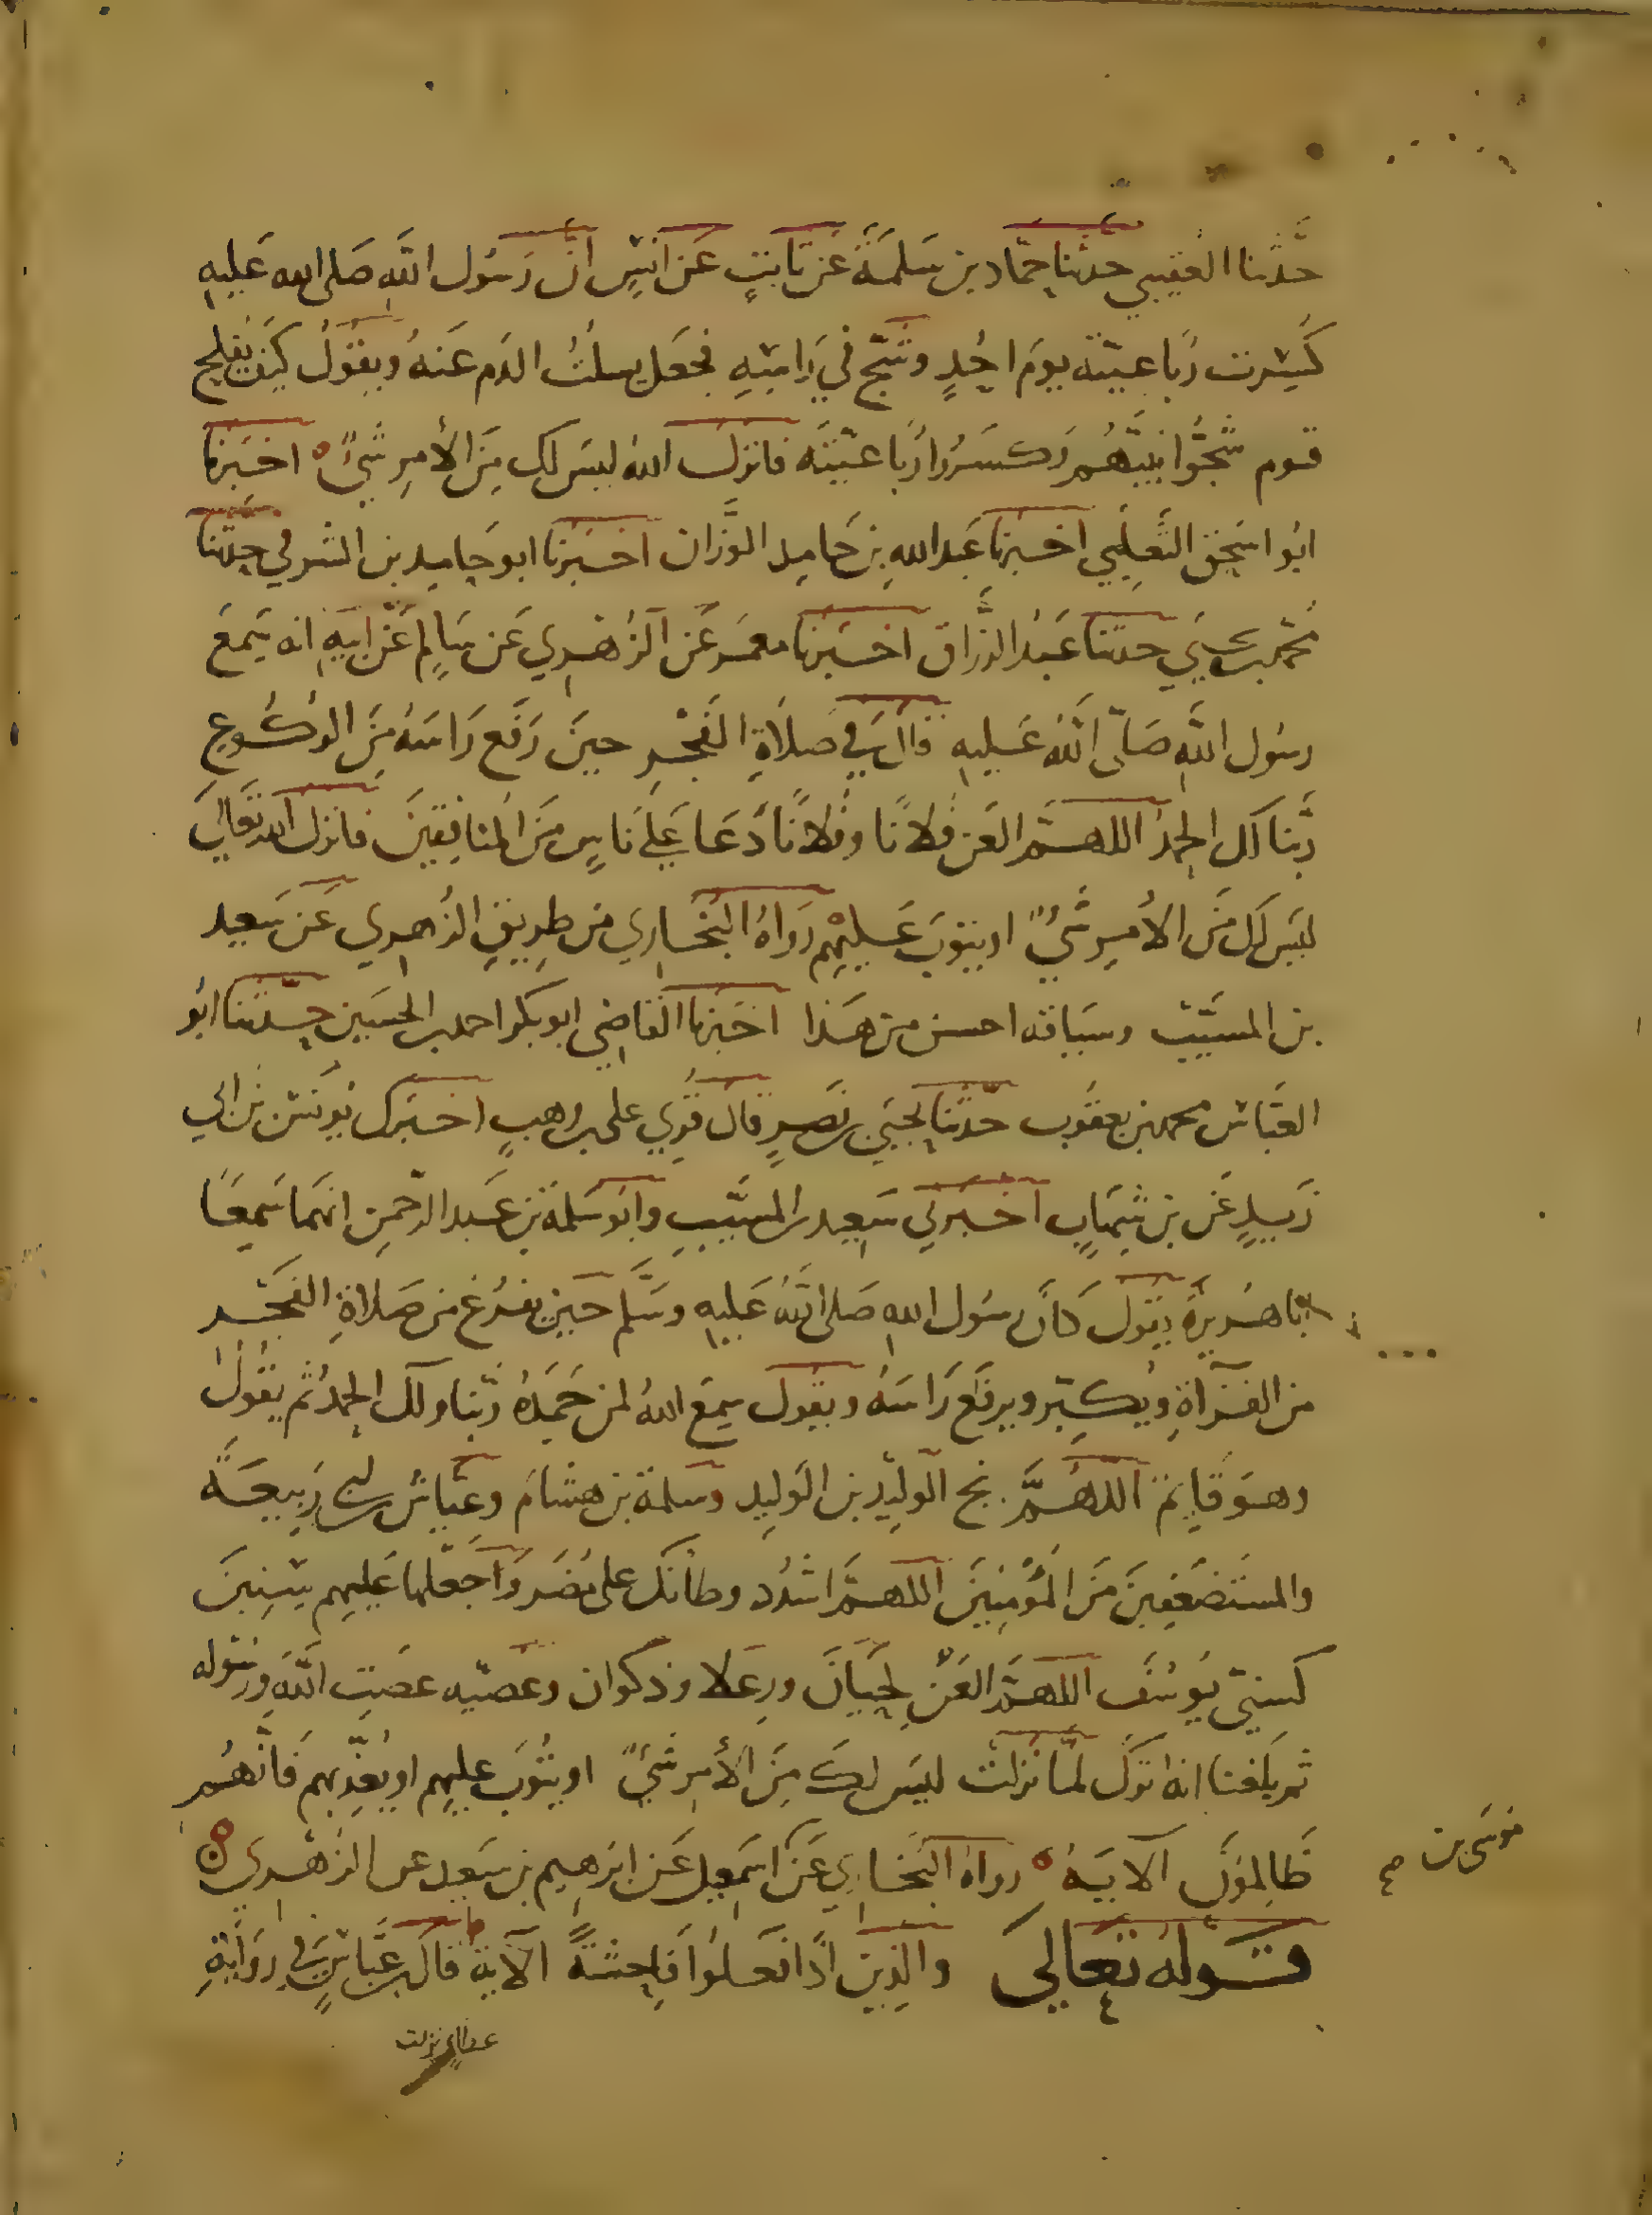 حدثنا القعنبي حدثنا حماد بن سلمة عن ثابت عن انس ان رسول الله صلى الله عليه
كسرت رباعيته يوم احد وشج في راسه فجعل يسلت الدم عنه ويقول كيف يفلح
قوم شجوا نبيهم وكسروا رباعيته فانزل الله ليس لك من الأمر شيء اخبرنا
ابو اسحق الثعلبي اخبرنا عبد الله بن حامد الوزان اخبرنا ابو حامد بن الشرقي حدثنا
محمد بن يحيى حدثنا عبد الرزاق اخبرنا معمر عن الزهري عن سالم عن ابيه انه سمع
رسول الله صلى الله عليه قال في صلاة الفجر حين رفع راسه من الركوع
ربنا لك الحمد اللهم العن فلانا وفلانا دعا على ناس من المنافقين فانزل الله تعالى
ليس لك من الأمر شيء او يتوب عليهم رواه البخاري من طريق الزهري عن سعيد
بن المسيب وسياقه احسن من هذا اخبرنا القاضي ابو بكر احمد بن الحسين حدثنا ابو
العباس محمد بن يعقوب حدثنا يحيى بن نصر قال قري على بن وهب اخبرك يونس بن
زيد عن بن شهاب اخبرني سعيد بن المسيب وابو سلمة بن عبد الرحمن انهما سمعا
ابا هريرة يقول كان رسول الله صلى الله عليه وسلم حين يفرغ من صلاة الفجر
من القراة ويكبر ويرفع راسه ويقول سمع الله لمن حمده ربنا ولك الحمد ثم يقول
وهو قايم اللهم نج الوليد بن الوليد وسلمة بن هشام وعياش بن ابي ربيعة
والمستضعفين من المؤمنين اللهم اشدد وطاتك على مضر واجعلها عليهم سنين
كسني يوسف اللهم العن لحيان ورعلا وذكوان وعصيه عصت الله ورسوله
ثم بلغنا انه ترك لما نزلت ليس لك من الأمر شيء او يتوب عليهم او يعذبهم فانهم
ظالمون الاية رواه البخاري عن موسى بن اسمعيل عن ابرهيم بن سعيد عن الزهري
قوله تعالى والذين اذا فعلوا فاحشة الآية قال بن عباس في رواية
عطاء نزلت